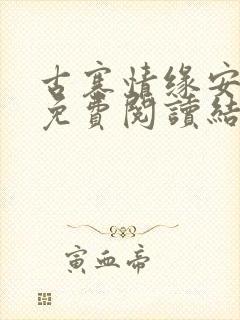 古寨情缘安
免費閱讀結
寅血帝